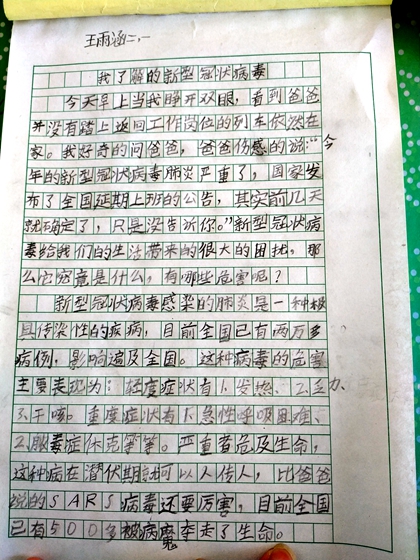 王雨涵二.一
我了解的新型冠状病毒
今天早上当我睁开双眼，看到爸爸
并没有踏上返回工作岗位的列车依然在
家。我好奇的问爸爸，爸爸伤感的说“今
年的新型冠状病毒肺炎严重了，国家发
布了全国延期上班的公告，其实前几天
就确定了，只是没告诉你。”新型冠状病
毒给我们的生活带来的很大的困扰，那
么它究竟是什么，有哪些危害呢？
新型冠状病毒感染的肺炎是一种极
具传染性的疾病，目前全国已有两万多
病例，影响遍及全国。这种病毒的危害
主要表现为：轻度症状有1、发热、2、乏力、
3、干咳。重度症状有1、急性呼吸困难、
2、脓毒症休克等等。严重者危及生命，
这种病在潜伏期就可以人传人，比爸爸
说的SARS病毒还要厉害，目前全国
已有500多被病魔夺走了生命。